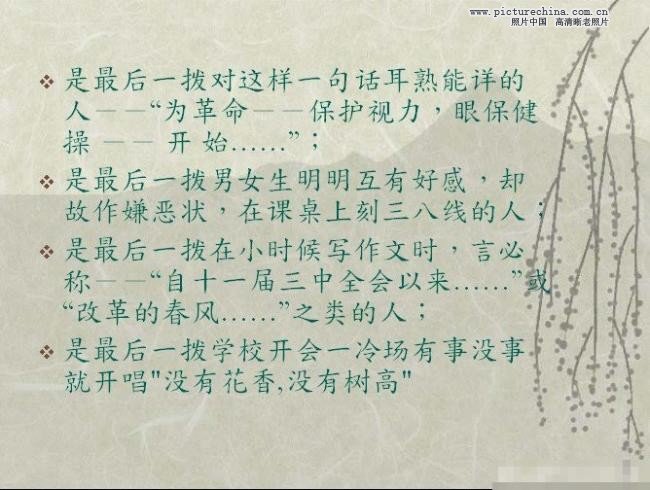 www.picturechina.com.cn
照片中国 高清晰老照片
是最后一拨对这样一句话耳熟能详的
人——“为革命——保护视力，眼保健
操——开始……”；
是最后一拨男女生明明互有好感，却
故作嫌恶状，在课桌上刻三八线的人；
是最后一拨在小时候写作文时，言必
称——“自十一届三中全会以来……”或
“改革的春风……”之类的人；
是最后一拨学校开会一冷场有事没事
就开唱"没有花香,没有树高"